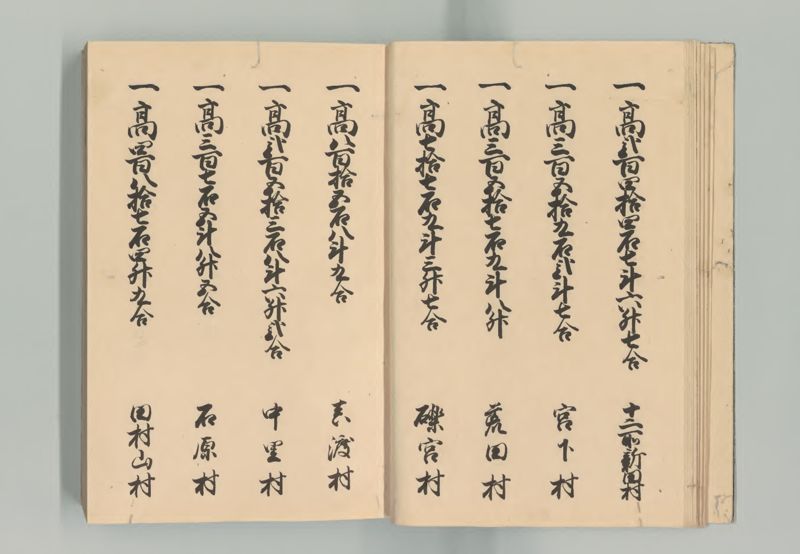 一高弐百四拾四石七斗六升七合 十二所新田村
一高三百五拾九石弐斗七合 宮下村
一高三百五拾七石九斗八升 荒田村
一高七拾七石九斗三升七合 礫宮村
一高八百拾五石八斗九合 真渡村
一高弐百五拾三石八斗六升弐合 中里村
一高三百七石五斗八升五合 石原村
一高四百八拾七石四升九合 田村山村